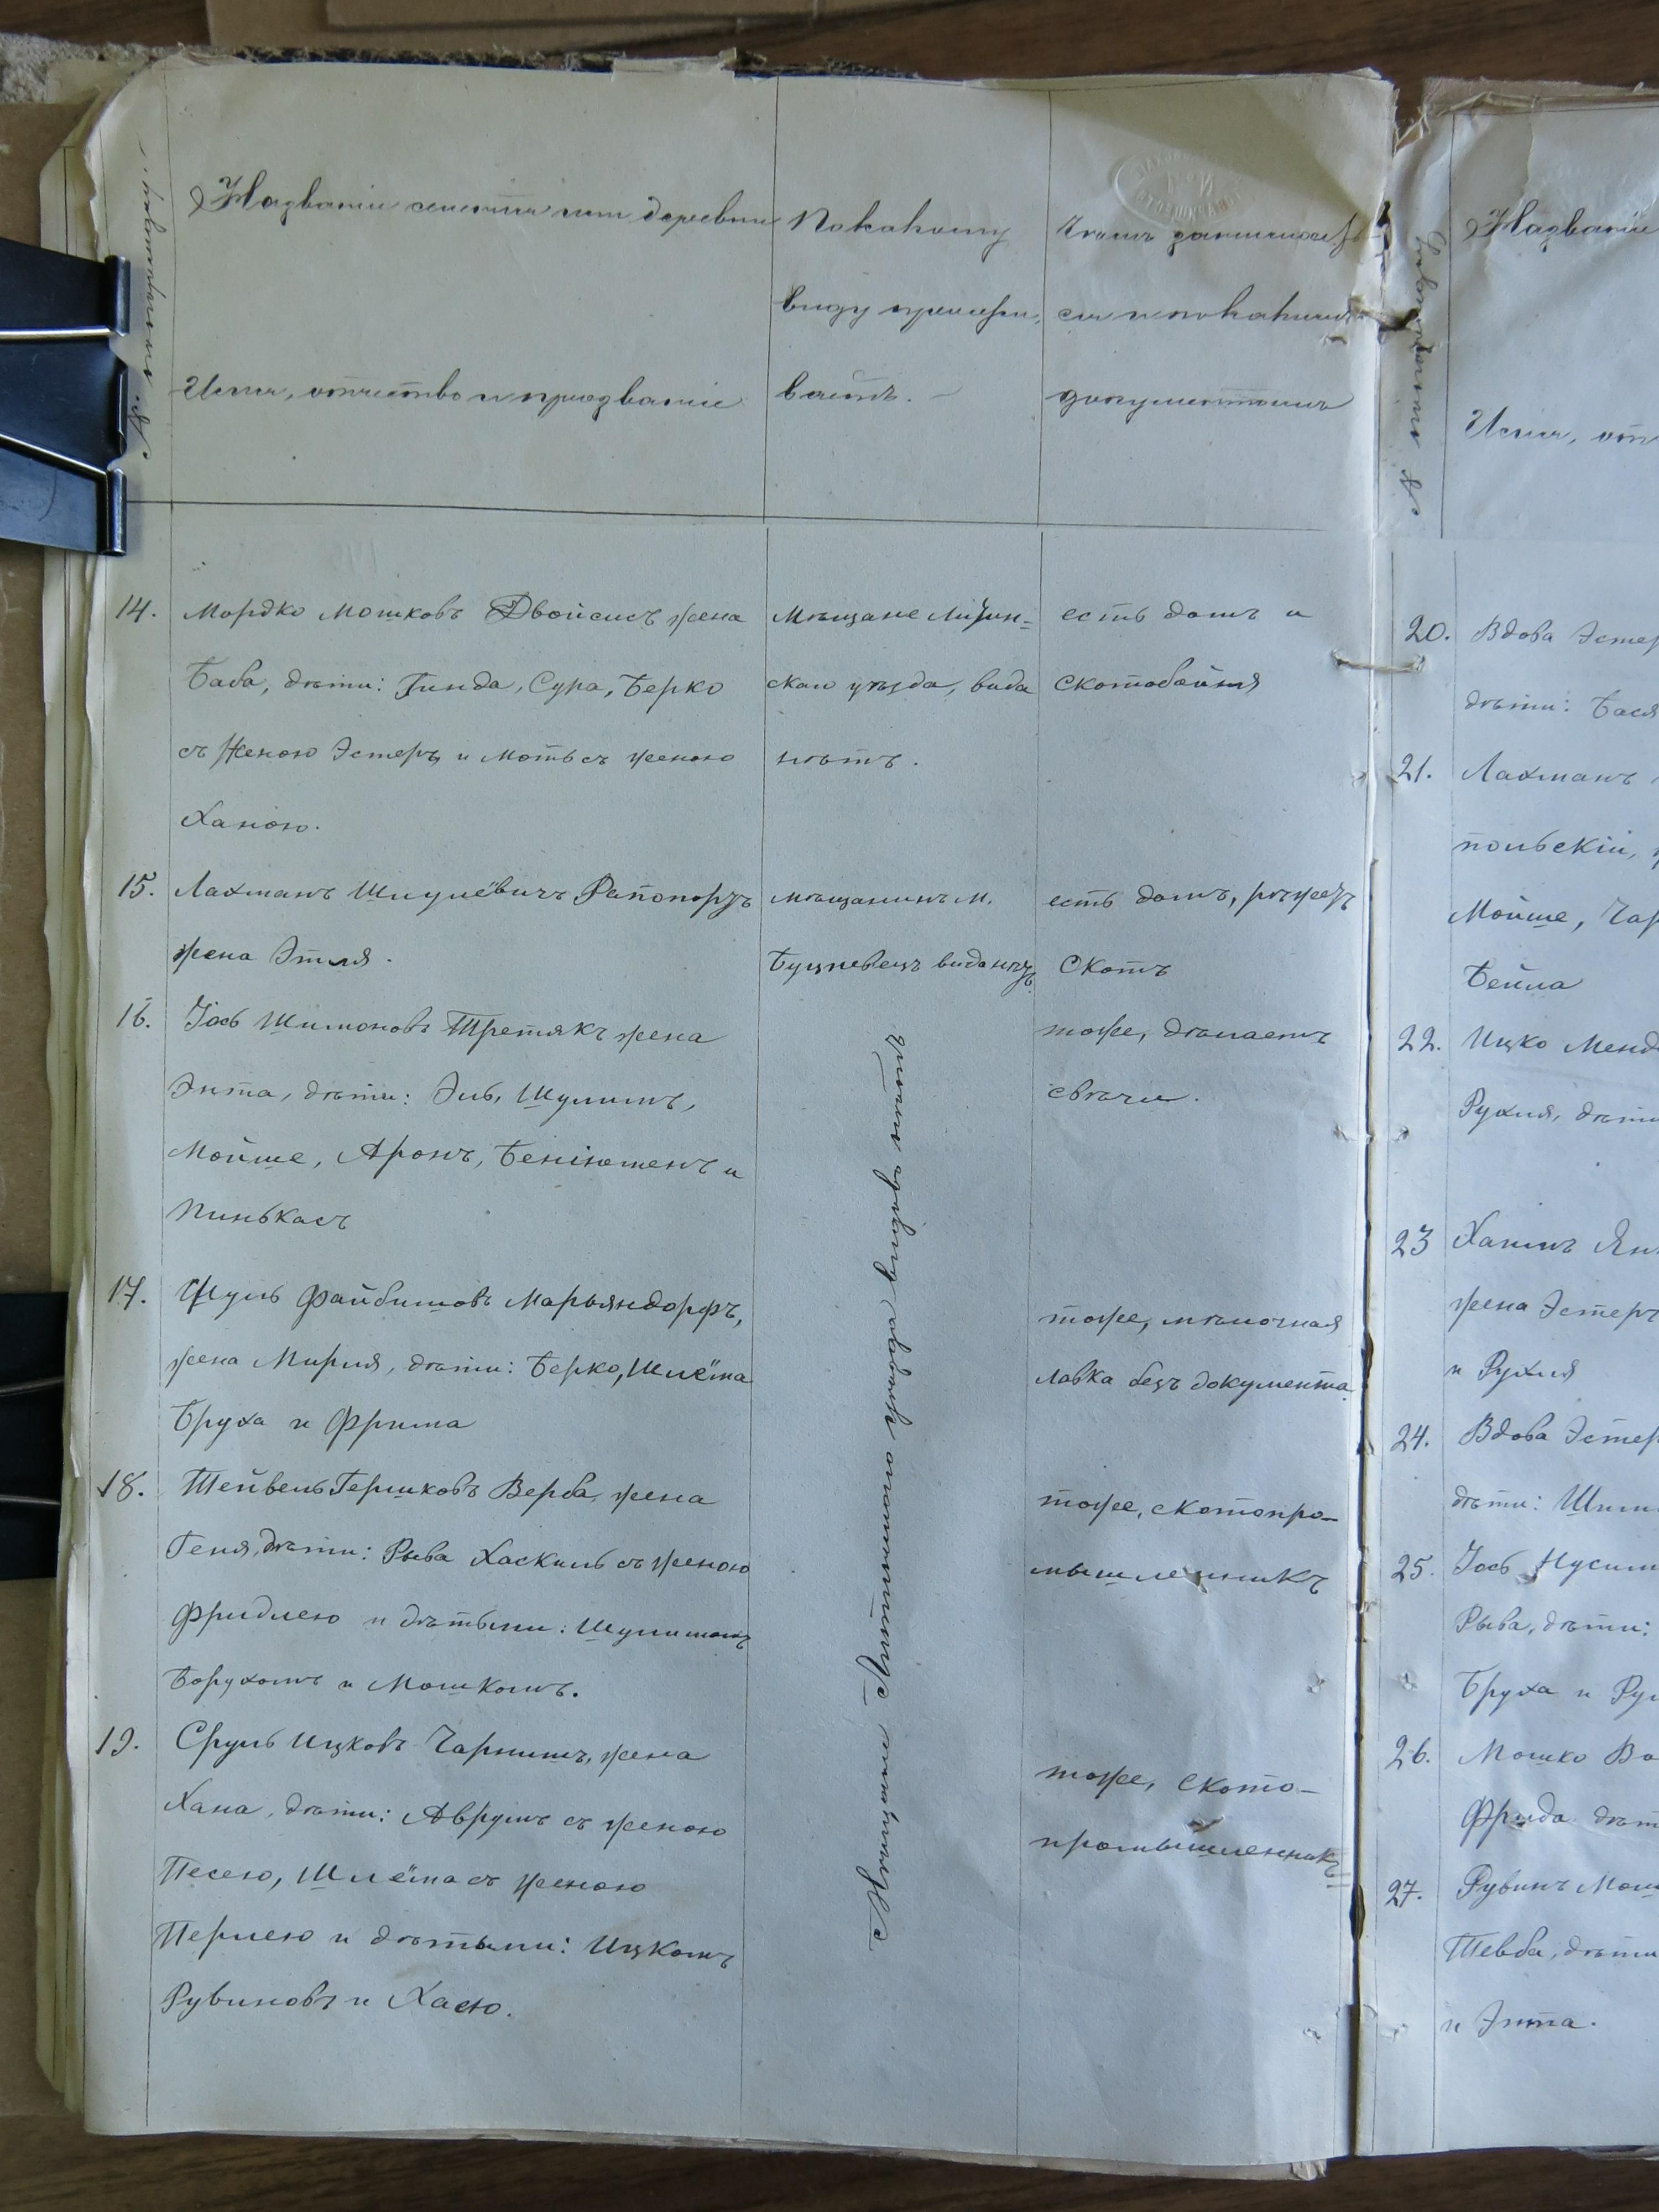 Порядковый №
Названіе селенія или деревни
Имя, отчество и прозваніе
По какому
виду прожи-
ваетъ.
Чѣмъ занимает-
ся и по какимъ
документамъ
14. Мордко Мошковъ Двойсисъ жена
Баба, дѣти: Гинда, Сура, Берко
съ женою Эстеръ и Моть съ женою
Ханою.
Мѣщане Литин-
скаго уѣзда, вида
нѣтъ.
есть домъ и
скотобойня
15. Лахманъ Шмулёвичъ Рапопортъ
жена Этля.
мѣщанинъ м.
вида нѣтъ
есть домъ, рѣжетъ
скотъ
16. Іось Шимоновъ Третякъ жена
Энта, дѣти: Эль, Шулимъ,
Мойше, Аронъ, Беніюменъ и
Пинькасъ
тоже, дѣлаетъ
свѣчи.
17. Шуль Файбишовъ Марьяндорфъ,
жена Мирля, дѣти: Берко, Шлёма
Бруха и Фрима
тоже, мѣлочная
лавка безъ документа
18. Тейвель Гершковъ Верба, жена
Геня, дѣти: Рыва Хаскиль съ женою
Фридлею и дѣтьми: Шулимомъ
Борухомъ и Мошкомъ.
тоже, скотопро-
мышленникъ
19. Сруль Ицковъ Чарнишъ, жена
Хана, дѣти: Аврумъ съ женою
Песею, Шлёма съ женою
Перлею и дѣтьми: Ицкомъ
Рувиновъ и Хасю.
тоже, ското-
промышленникъ
Названіе
Имя, от
20. Вдова Эстер
дѣти: Бася
21. Лахманъ
польскій,
Мойше, Чар
Бейла
22. Ицко Менд
Рухля, дѣти
23 Хаимъ Ян
жена Эстеръ
и Рухля
24. Вдова Эстер
дѣти: Шим
25. Іось Нусим
Рыва, дѣти:
Бруха и Рух
26. Мошко Во
Фрида дѣт
27. Рувинъ Мош
Тевба, дѣти
и Энта.